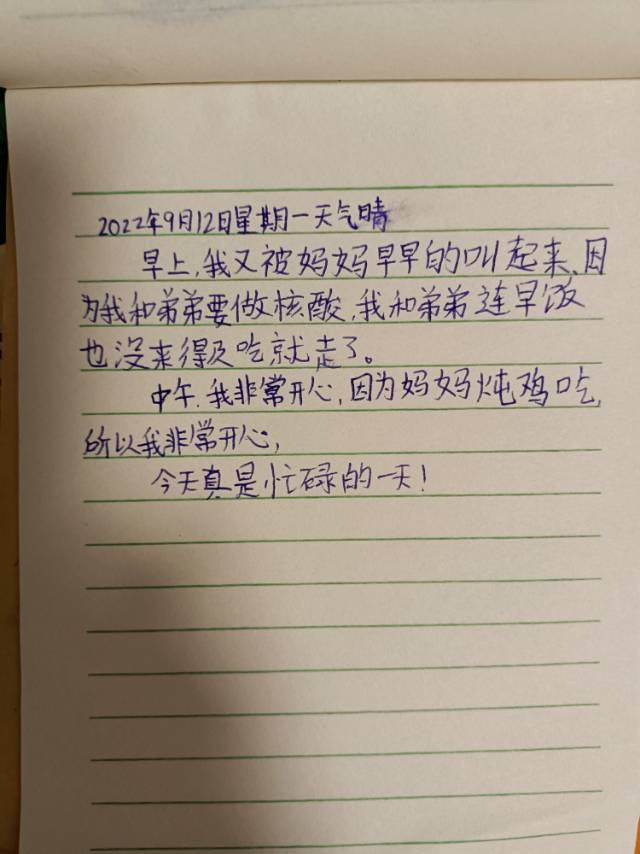 2022年9月12日星期一天气晴
早上,我又被妈妈早早的叫起来、因
为我和弟弟要做核酸,我和弟弟连早饭
也没来得及吃就走了。
中午.我非常开心,因为妈妈炖鸡吃,
所以我非常开心,
今天真是忙碌的一天!